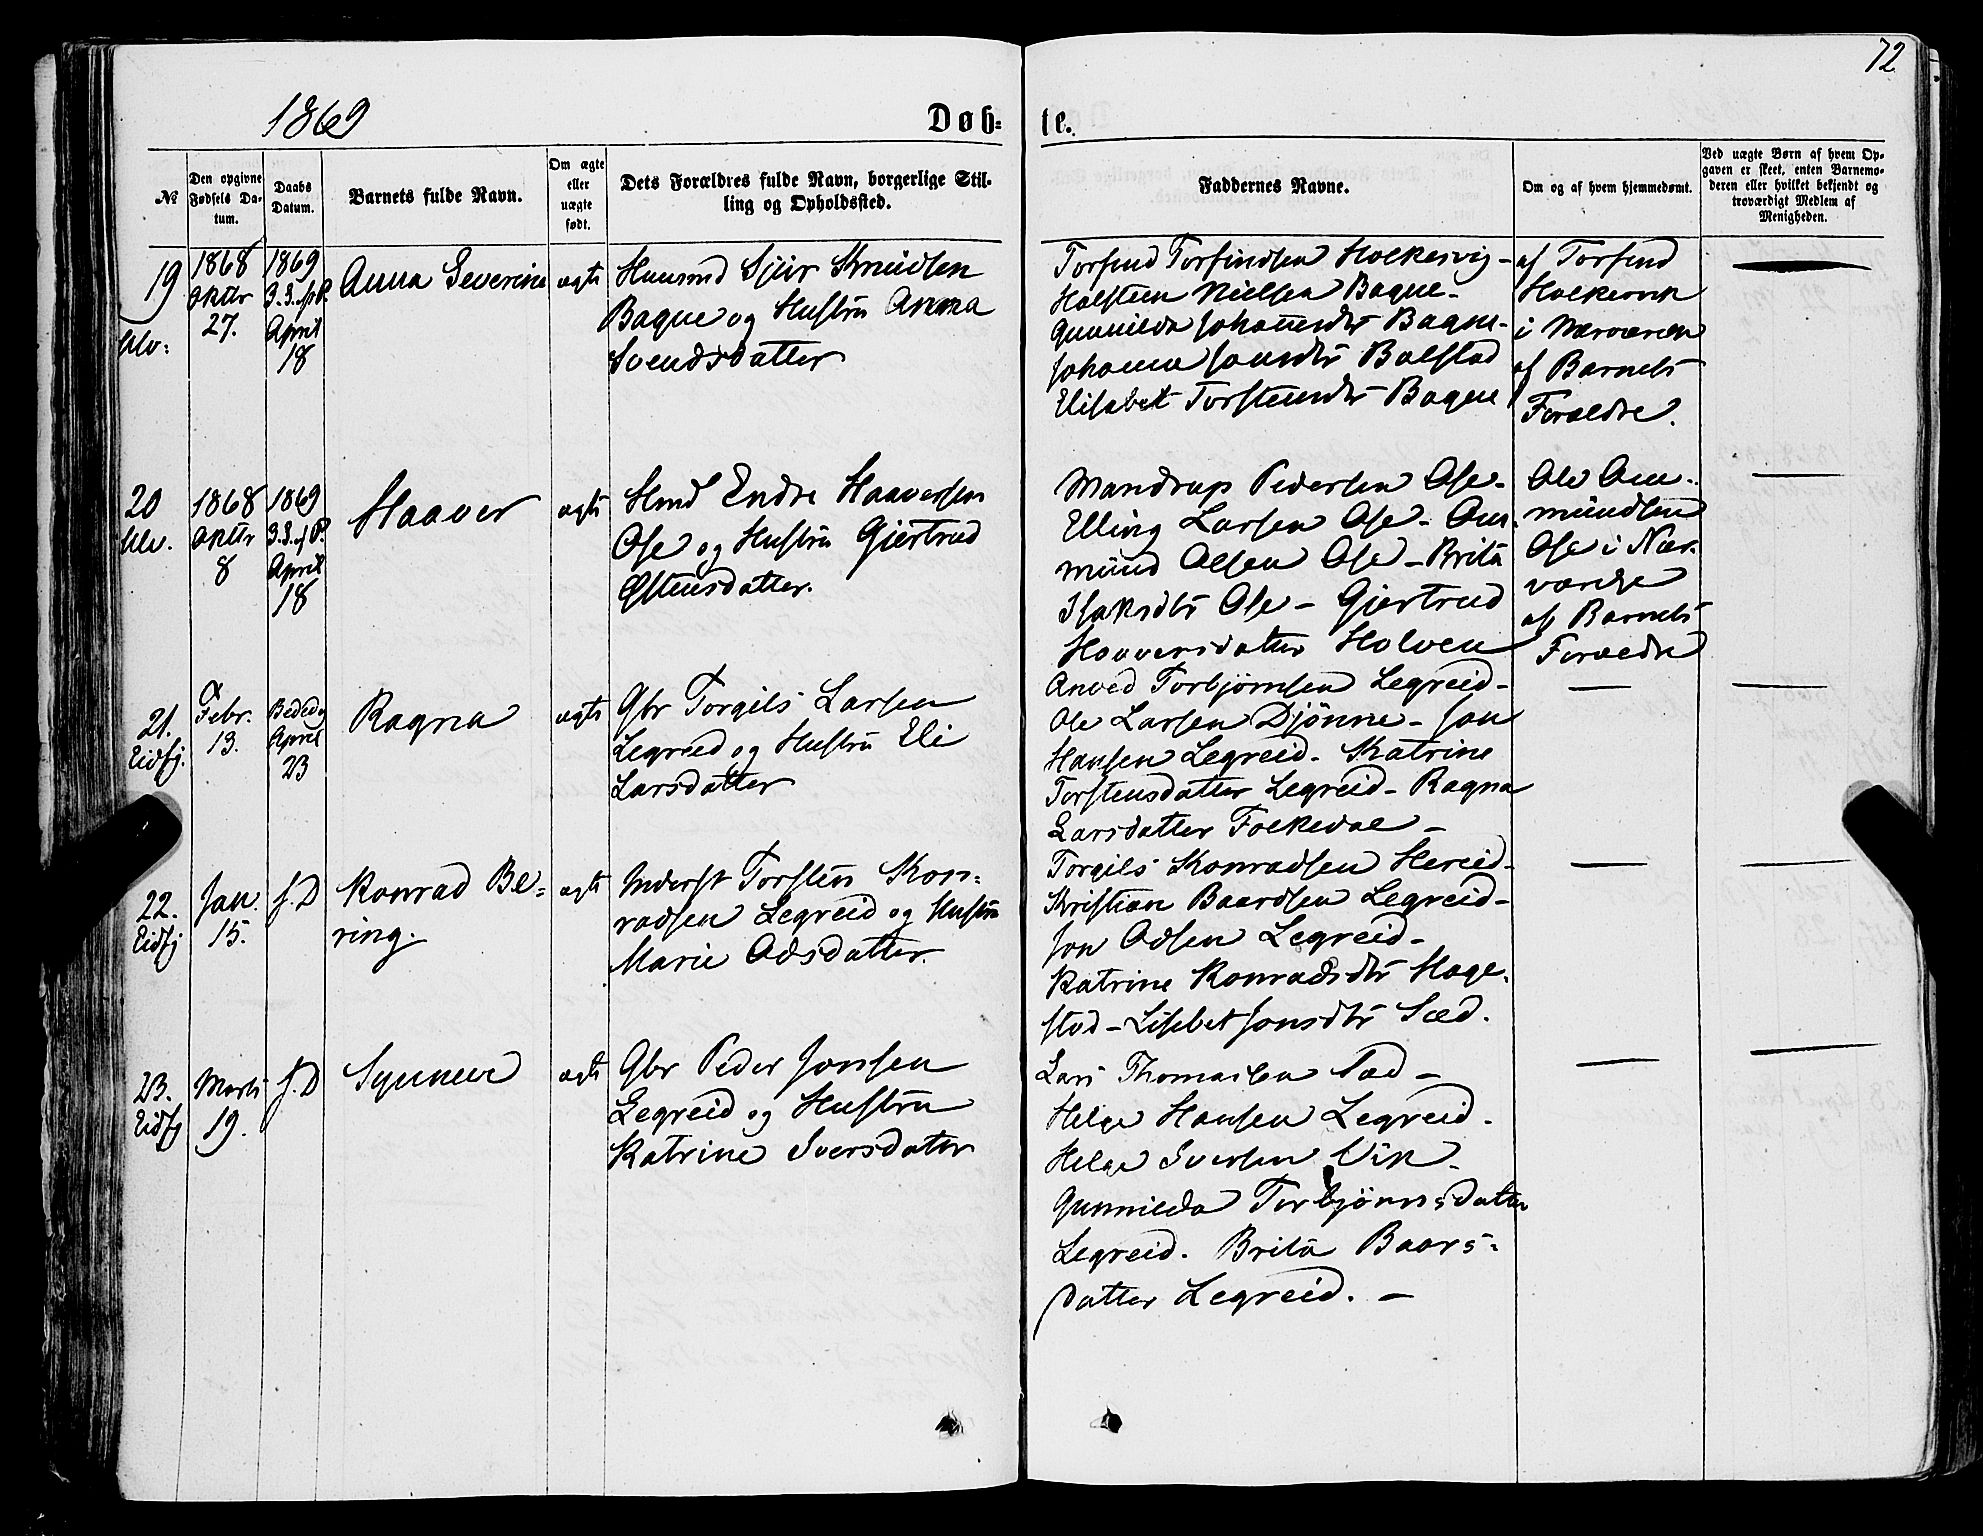 72
1869
Døb=
te.
№
Den opgivne Fødsels Da-
tum.
Daabs
Datum.
Barnets fulde Navn.
Om ægte
eller
uægte
født.
Dets Forældres fulde Navn, borgerlige Stil-
ling og Opholdssted.
Faddernes Navne.
Om og af hvem hjemmedømt.
Ved uægte Børn af hvem Op-
gaven er skeet, enten Barnemo-
deren eller hvilket bekjendt og
troværdigt Medlem af
Menigheden.
19
Ulv:
1868
Oktbr
27.
1869
3.S.f.P.
April
18
Anna Severine
ægte
Huusmd Sjur Knudsen
Bagne og Hustru Anna
Svendsdatter
Torfind Torfindsen Holkesvig -
Holsteen Nielsen Bagne -
Gunnilda Johannesdtr Bagne -
Johanna Jonsdtr Bolstad
Elisabet Torsteinsdtr Bagne
af Torfind
Holkesvik
i Nærværelse
af Barnets
Forældre.
20
Ulv.
1868
Oktbr
8
1869
3.S.f.P.
April
18
Haaver
ægte
Hmd Endre Haaversen
Ose og Hustru Gjertrud
Østensdatter.
Mandrup Pedersen Ose -
Elling Larsen Ose - Am-
mund Olsen Ose - Brita
Isaksdtr Ose - Gjertrud
Haaversdatter Holven
Ole Am-
mundsen
Ose i Nær-
værelse
af Barnets
Forældre
21.
Eidfj.
Febr.
13.
Bededag
April
23
Ragna
ægte
Gbr Torgils Larsen
Legreid og Hustru Eli
Larsdatter
Anved Torbjørnsen Legreid -
Ole Larsen Djönne - Jon
Hansen Legreid - Katrine
Torstensdatter Legreid - Ragna
Larsdatter Folkedal -
22.
Eidfj
Jan.
15.
s.D
Konrad Be=
ring.
ægte
Inderst Torsten Kon=
radsen Legreid og Hustru
Marie Adsdatter.
Torgils Konradsen Hereid -
Kristian Baardsen Legreid -
Jon Adsen Legreid -
Katrine Konradsdtr Hage-
stad - Lisbet Jonsdtr Sæd.
23.
Eidfj
Marts
19.
s.D
Synneve
ægte
Gbr Peder Jonsen
Legreid og Hustru
Katrine Iversdatter
Lars Thomassen Sæd -
Helge Hansen Legreid -
Helge Iversen Vik -
Gunnilda Torbjörnsdatter
Legreid. Brita Baars=
datter Legreid. -